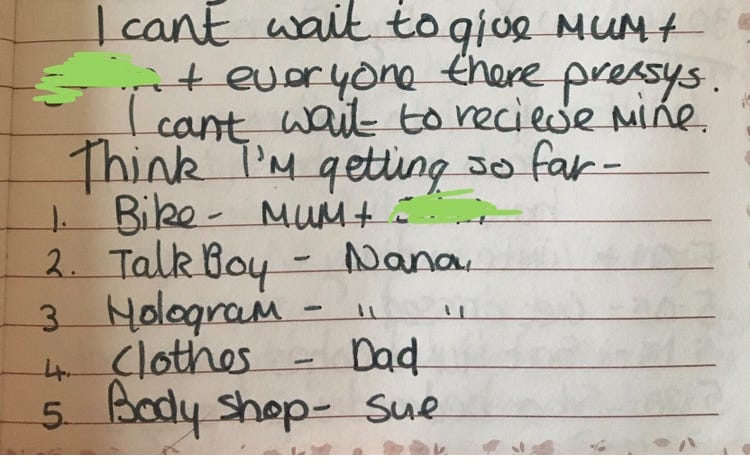 I cant wait to give MUM +
+ everyone there pressys.
I cant wait to recieve mine.
Think I'm getting so far -
1. Bike - MUM +
2. Talk Boy - Nana
3 Hologram - " "
4. Clothes - Dad
5. Body Shop - Sue